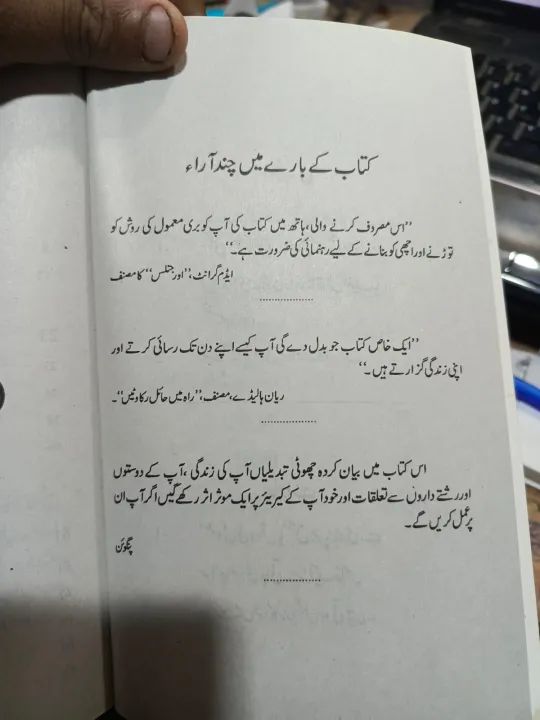 کتاب کے بارے میں چند آراء
”اس مصروف کرنے والی، ہاتھ میں کتاب کی آپ کو بری معمول کی روش کو
توڑنے اور اچھی کو بنانے کے لیے رہنمائی کی ضرورت ہے۔“
ایڈم گرانٹ، ”اورجنلس“ کا مصنف
................
”ایک خاص کتاب جو بدل دے گی آپ کیسے اپنے دن تک رسائی کرتے اور
اپنی زندگی گزارتے ہیں۔“
ریان ہالیڈے، مصنف، ”راہ میں حائل رکاوٹیں“۔
................
اس کتاب میں بیان کردہ چھوٹی تبدیلیاں آپ کی زندگی، آپ کے دوستوں
اور رشتے داروں سے تعلقات اور خود آپ کے کیریئر پر ایک موثر اثر رکھے گیں اگر آپ ان
پر عمل کریں گے۔
پنگوئن
................